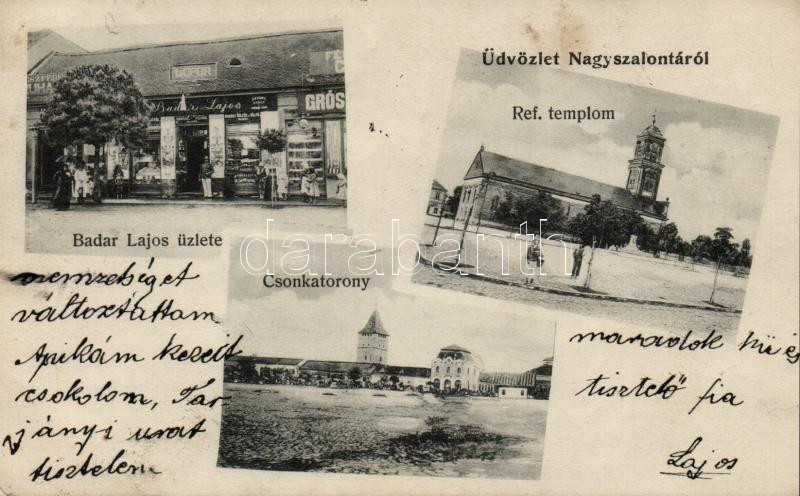 Üdvözlet Nagyszalontáról
Ref. templom
DOHÁNY
Badar Lajos
GRÓS
Badar Lajos üzlete
Csonkatorony
darabanth.com
nemzetséget
változtattam
Apikám kezeit
csokolom, Tar
jányi urat
tisztelem
maradok hű és
tisztelő fia
Lajos